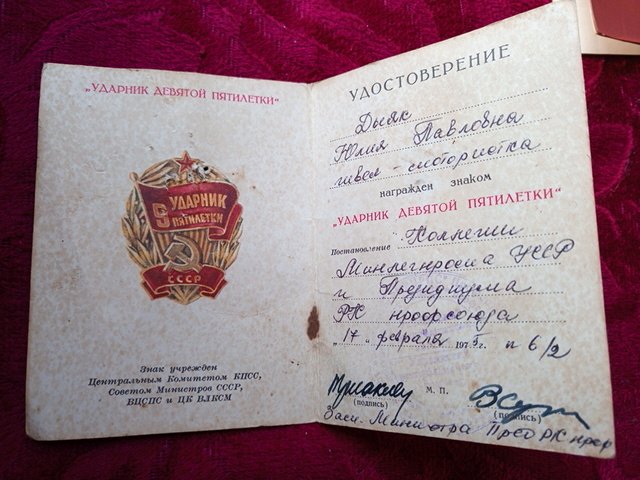 „УДАРНИК ДЕВЯТОЙ ПЯТИЛЕТКИ"
9 УДАРНИК
ПЯТИЛЕТКИ
СССР
Знак учрежден
Центральным Комитетом КПСС,
Советом Министров СССР,
ВЦСПС и ЦК ВЛКСМ
УДОСТОВЕРЕНИЕ
Дыяк
Юлия Павловна
швея - мотористка
награжден знаком
„УДАРНИК ДЕВЯТОЙ ПЯТИЛЕТКИ"
Постановление Коллегии
Минлегпрома УССР
и Президиума
РК профсоюза
"17" февраля 1975г. п 6/2
М. П.
(подпись) (подпись)
Зам. Министра Пред РК проф